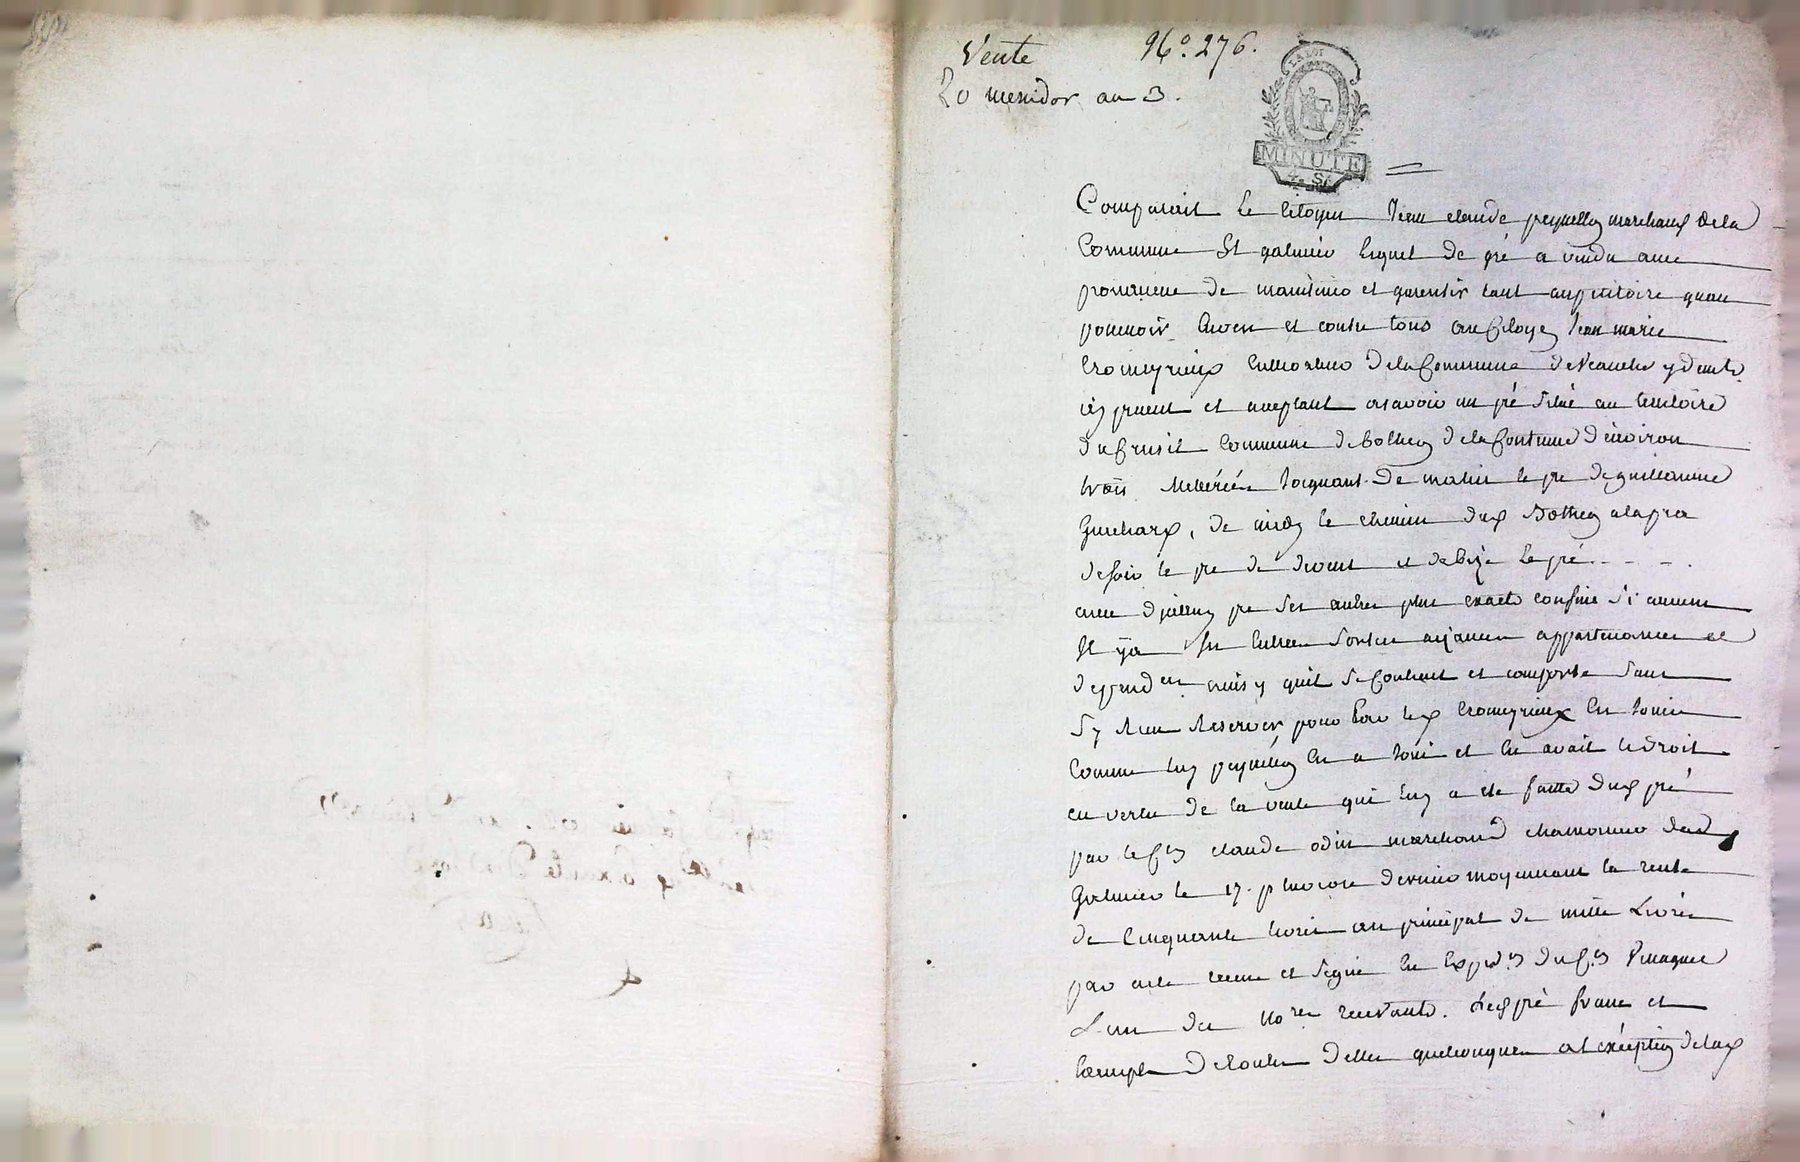 Vente
N.° 276.
20 messidor an 3.
LA LOI
MINUTE
4. S.
Comparait le Citoyen Jean claude peyrellon marchand de la
Commune St galmier lequel de gré a vendu avec
promesse de maintenir et garentir tant au petitoire quau
envers et contre tous au Citoyen Jean marie
Cromeyrieux cultivateur de la Commune de Veauche y demt
icy présent et acceptant asavoir un pré situé au territoire
du Commune de bothéon de la Contenue d'environ
trois joignant de matin le pré de guillaume
Guichard, de midy le chemin dud Bothéon a
de soir le pré de et de bize le pré - - - -
avec ses autres plus exacts confins si aucuns
Il y a ses entrées sorties aizances appartenances et
dependces ainsy quil se Contient et comporte sans
sy rien Reserver pour par led Cromeyrieux en jouir
Comme luy peyrellon en a joui et en avait le droit
en vertu de la vente qui luy a été faitte dud pré
par le Cen claude odin marchand
Galmier le 17. pluviose dernier moyennant la rente
de Cinquante livres au principal de mille Livres
par acte recu et signé en Expedon du Cen
L'un des Nores recevants. Ledpré franc et
Exempt de toutes dettes quelconques a l'exception de lad